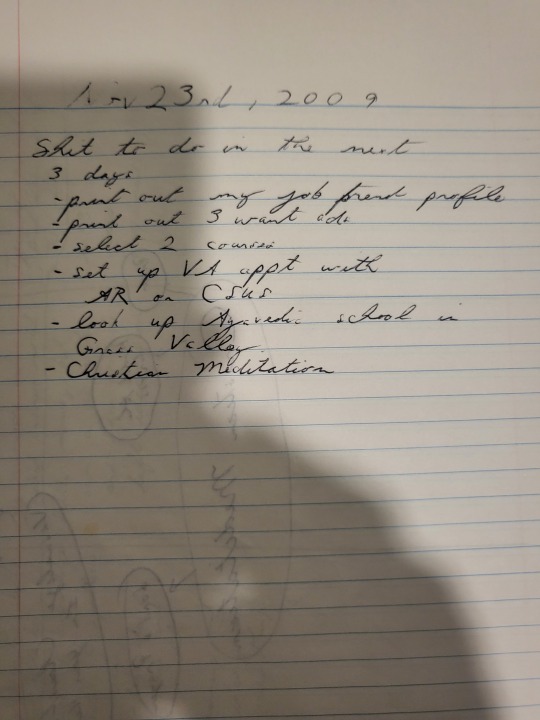 Nov 23rd, 2009
Shit to do in the next
3 days
- print out my job trend profile
- print out 3 want ads
- select 2 courses
- set up VA appt with
AR or CSUS
- look up Ayuvedic school in
Grass Valley
- Christian Meditation